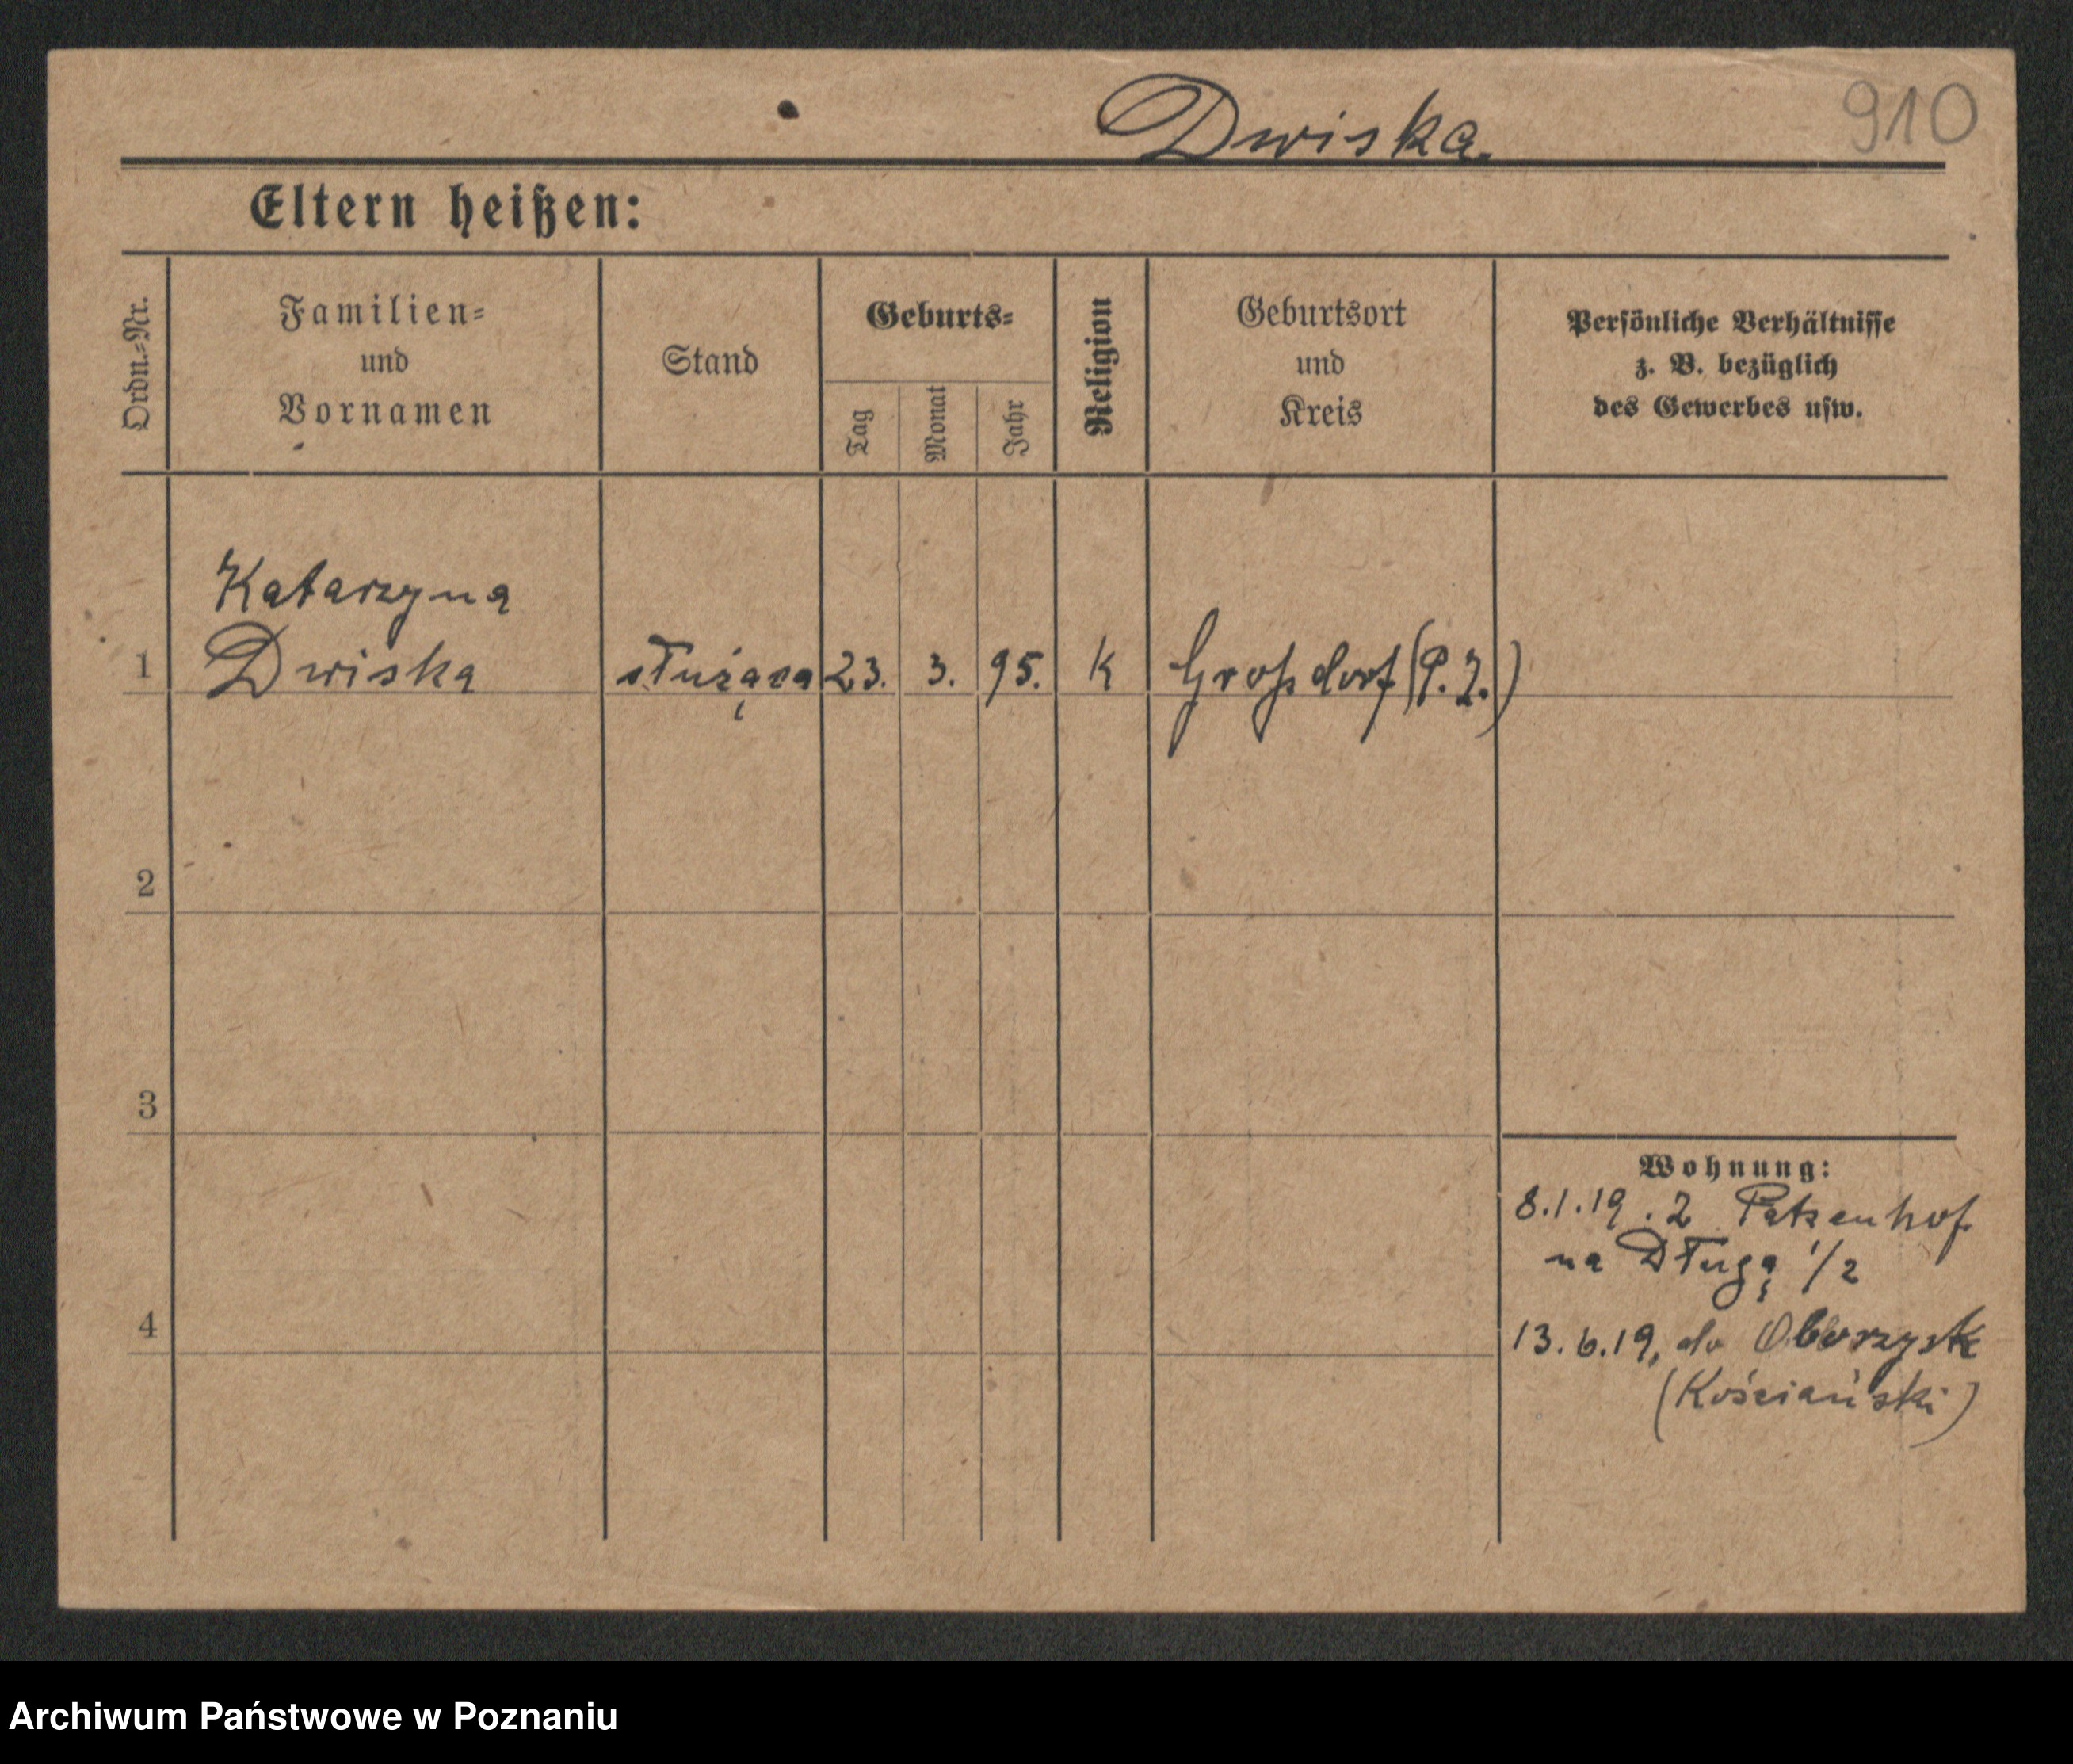 Dwiska
910
Eltern heißen:
Ordn.-Nr.
Familien-
und
Vornamen
Stand
Geburts-
Tag
Monat
Jahr
Religion
Geburtsort
und
Kreis
Persönliche Verhältnisse
z. B. bezüglich
des Gewerbes usw.
Katarzyna
1 Dwiska służąca 23. 3. 95. K Großdorf (P. Z.)
2
3
Wohnung:
8.1.19. z Petzenhof
na Długą 1/2
4
13.6.19, do Oborzysk
(Kościański)
Archiwum Państwowe w Poznaniu